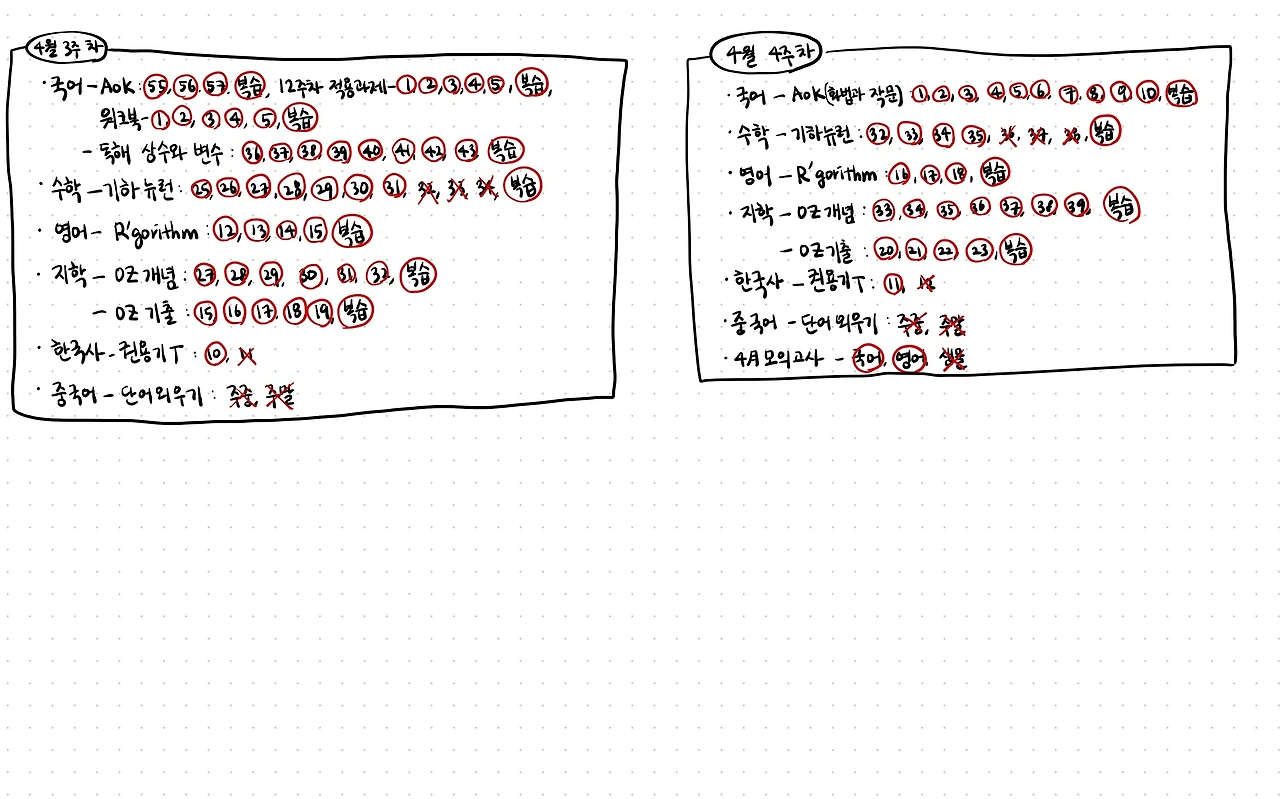 4월 3주차
· 국어 - AOK : 55, 56, 57, 복습, 12주차 적용과제 - 1, 2, 3, 4, 5, 복습,
워크북 - 1, 2, 3, 4, 5, 복습
- 독해 상수와 변수 : 36, 37, 38, 39, 40, 41, 42, 43, 복습
· 수학 - 기하 뉴런 : 25, 26, 27, 28, 29, 30, 31, 32, 33, 34, 복습
· 영어 - R'gorithm : 12, 13, 14, 15, 복습
· 지학 - OZ 개념 : 27, 28, 29, 30, 31, 32, 복습
- OZ 기출 : 15, 16, 17, 18, 19, 복습
· 한국사 - 권용기T : 10, 11
· 중국어 - 단어 외우기 : 주중, 주말
4월 4주차
· 국어 - AOK(화법과 작문) 1, 2, 3, 4, 5, 6, 7, 8, 9, 10, 복습
· 수학 - 기하뉴런 : 32, 33, 34, 35, 36, 37, 38, 복습
· 영어 - R'gorithm : 16, 17, 18, 복습
· 지학 - OZ 개념 : 33, 34, 35, 36, 37, 38, 39, 복습
- OZ 기출 : 20, 21, 22, 23, 복습
· 한국사 - 권용기T : 11, 12
· 중국어 - 단어 외우기 : 주중, 주말
· 4月 모의고사 - 국어, 영어, 생물